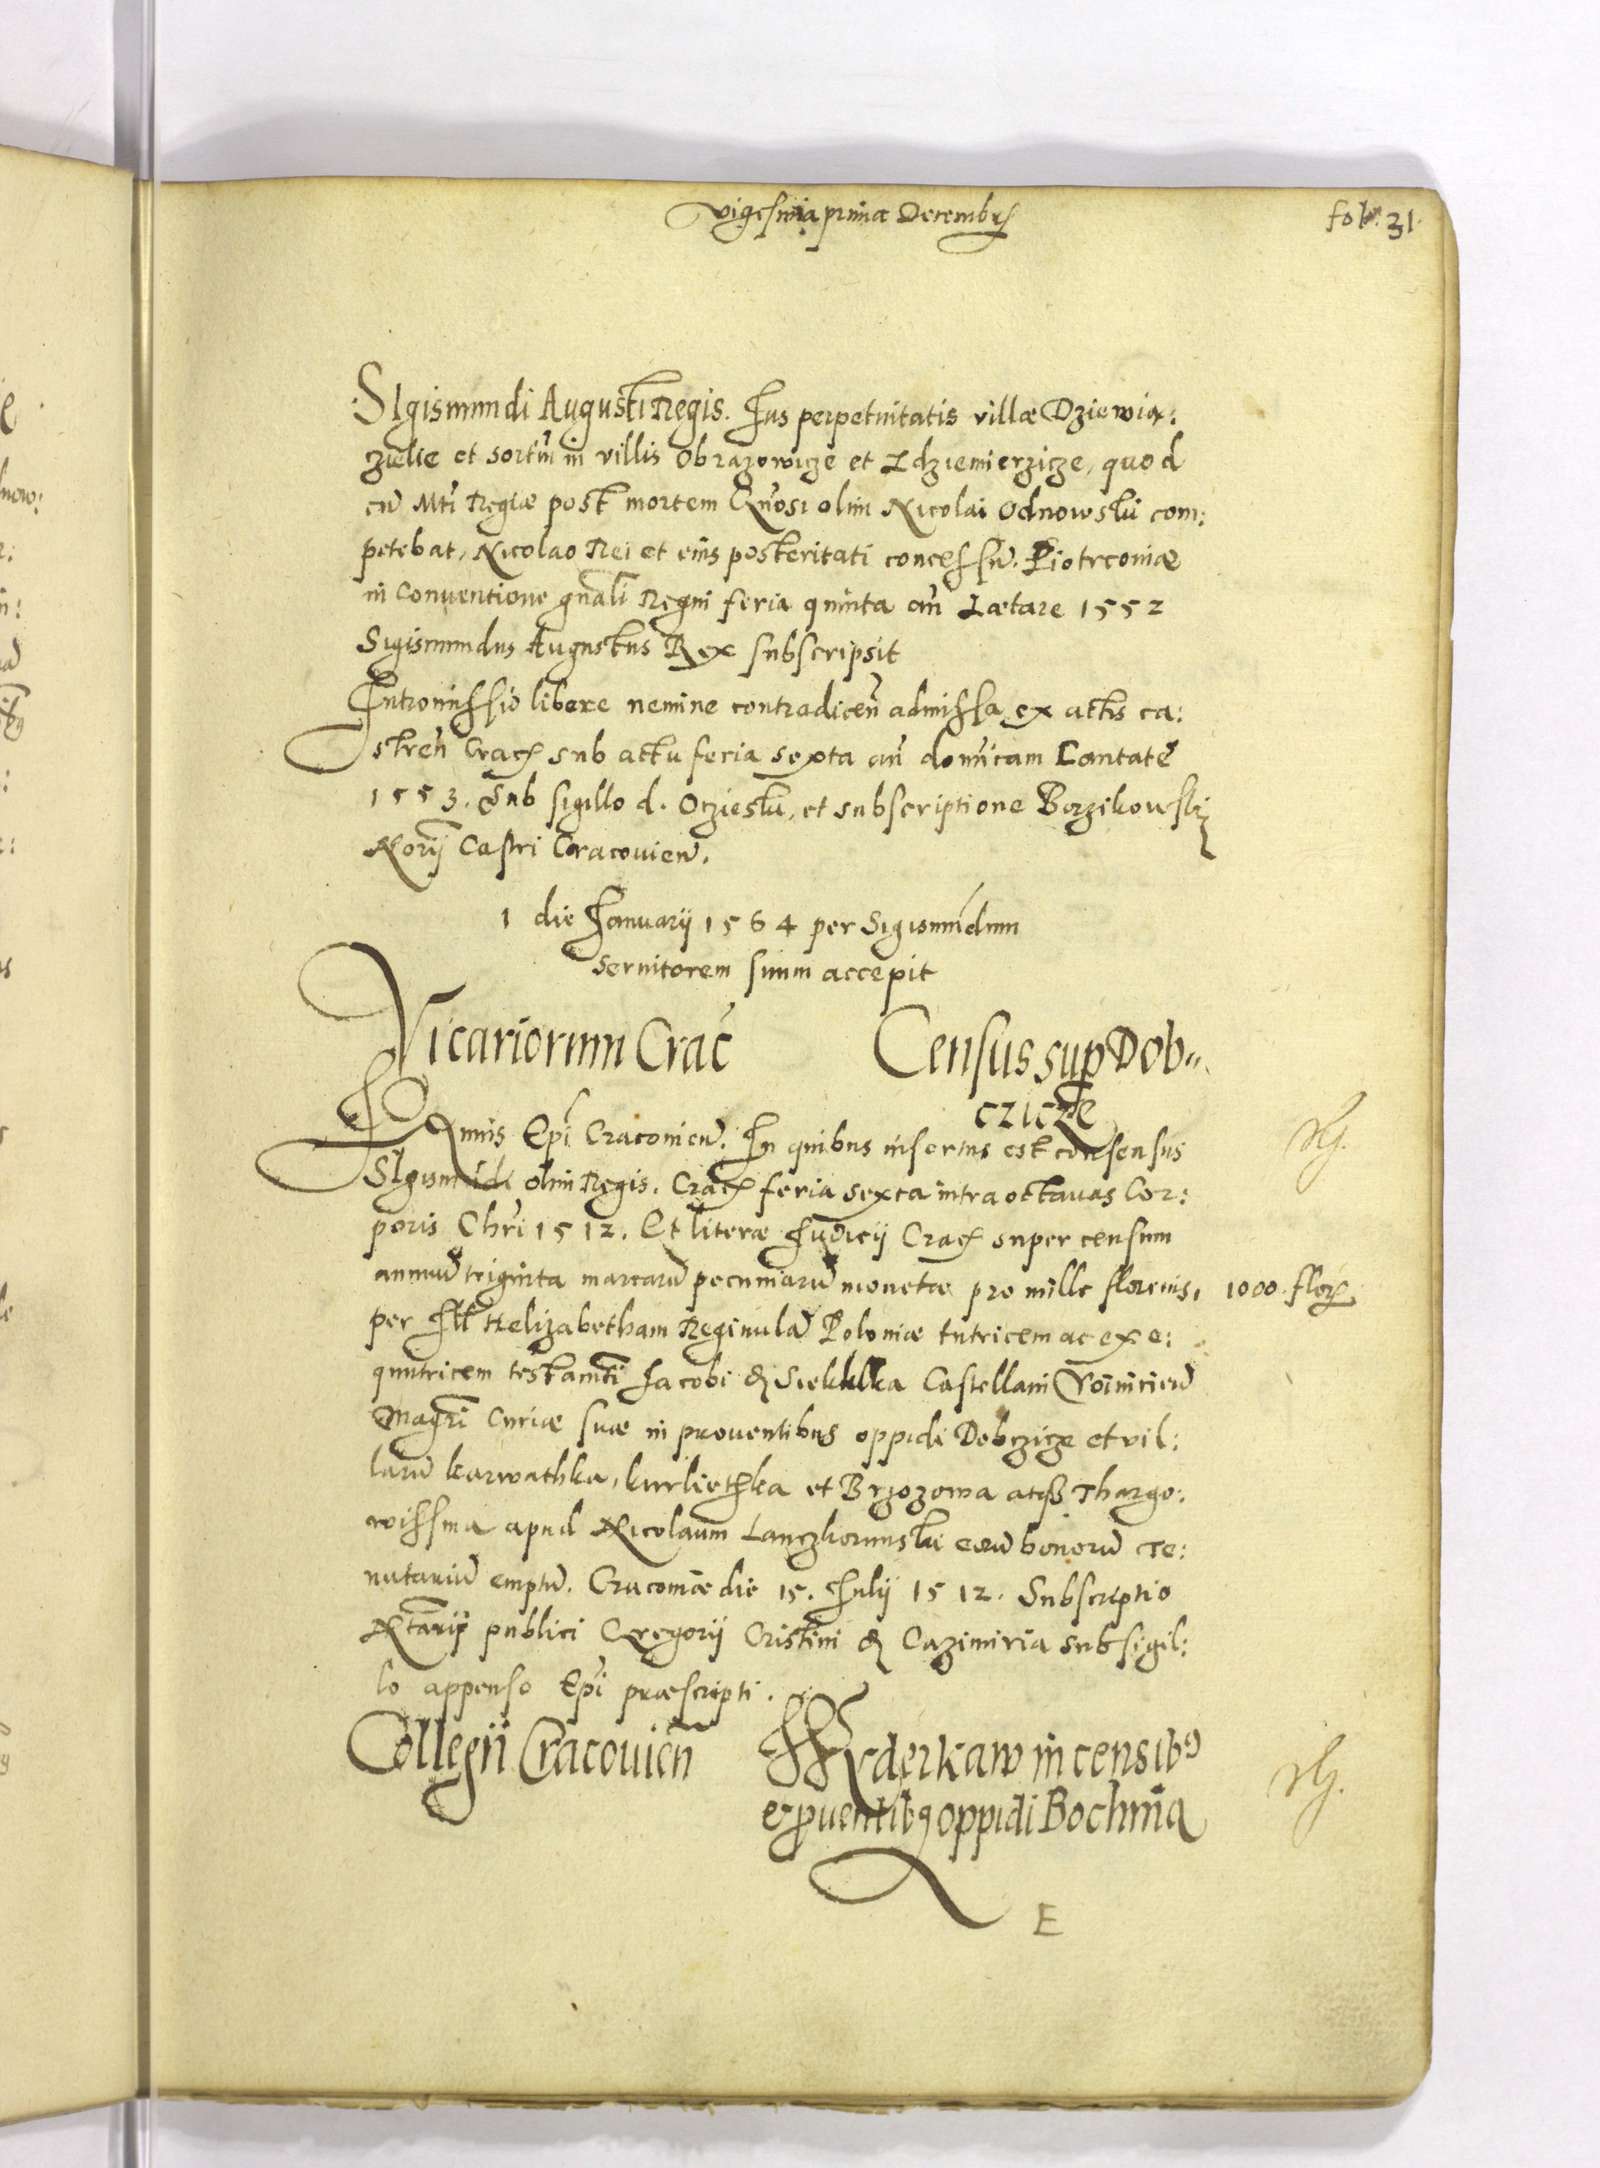 vigesima prima Decembris
fol: 31.
SIgismundi Augusti Regis. Ius perpetuitatis villae Dziewia:
zicze et sortiu in villis Obrazowicze et Idziemierzicze, quod
eu Mti Regiae post mortem Gnosi olim Nicolai Odnowski com:
petebat, Nicolao Rei et eius posteritati concessu. Piotrconiae
in Conventione gnali Regni feria quinta an Laetare 1552
Sigismundus Augustus Rex subscripsit
Intromissio libere nemine contradicen admissa ex actis ca:
stren Crac sub actu feria sexta an domicam Cantate
1553. Sub sigillo d. Oczieski, et subscriptione Borzikowski
Norij Castri Cracouien.
1 die Januarij 1564 per Sigismundum
seruitorem suum accepit
Vicariorum Crac
Census sup Dob
czicze
Epi Cracouien. In quibus insertus est consensus
SIgismudi olim Regis. Crac feria sexta intra octauas Cor:
poris Chri 1512. Et literae Judicij Crac super censum
annuu triginta marcaru pecuniaru monetae pro mille florenis,
1000 flor
per Ill Helizabetham Reginula Poloniae tutricem ac exe:
quutricem testamti Jacobi de Siekluka Castellani Voinicien
Magri Curiae suae in prouentibus oppidi Dobczicze et vil:
laru karwathka, kurliethka et Brzozowa atqs Thargo:
wissma apud Nicolaum Lanczkorunski eoru bonoru Te:
nutariu emptu. Cracouiae die 15. Julij 1512. Subscriptio
Ntarij publici Gregorij Cristini de Cazimiria sub sigil:
lo appenso Epi praescripti.
Collegii Cracouien
derkaw in censib9
et puentib9 oppidi Bochnia
E